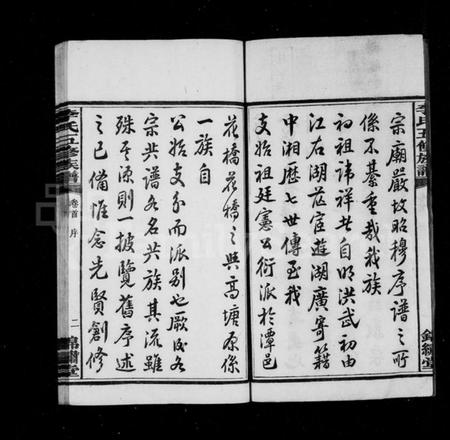 宗廟嚴故昭穆序譜之所
係不綦重哉我族
初祖諱祥公自明洪武初由
江右湖茫宦遊湖廣寄籍
中湘歷七世傳至我
支始祖廷憲公衍派於潭邑
花橋花橋之與高塘原係
一族自
公始支分而派別也厥後各
宗共譜各名共族其流雖
殊其源則一披覽舊序述
之已備惟念先賢創修
李氏五修族譜
卷首 序
二
錦繡堂
李氏五修族譜
錦繡堂